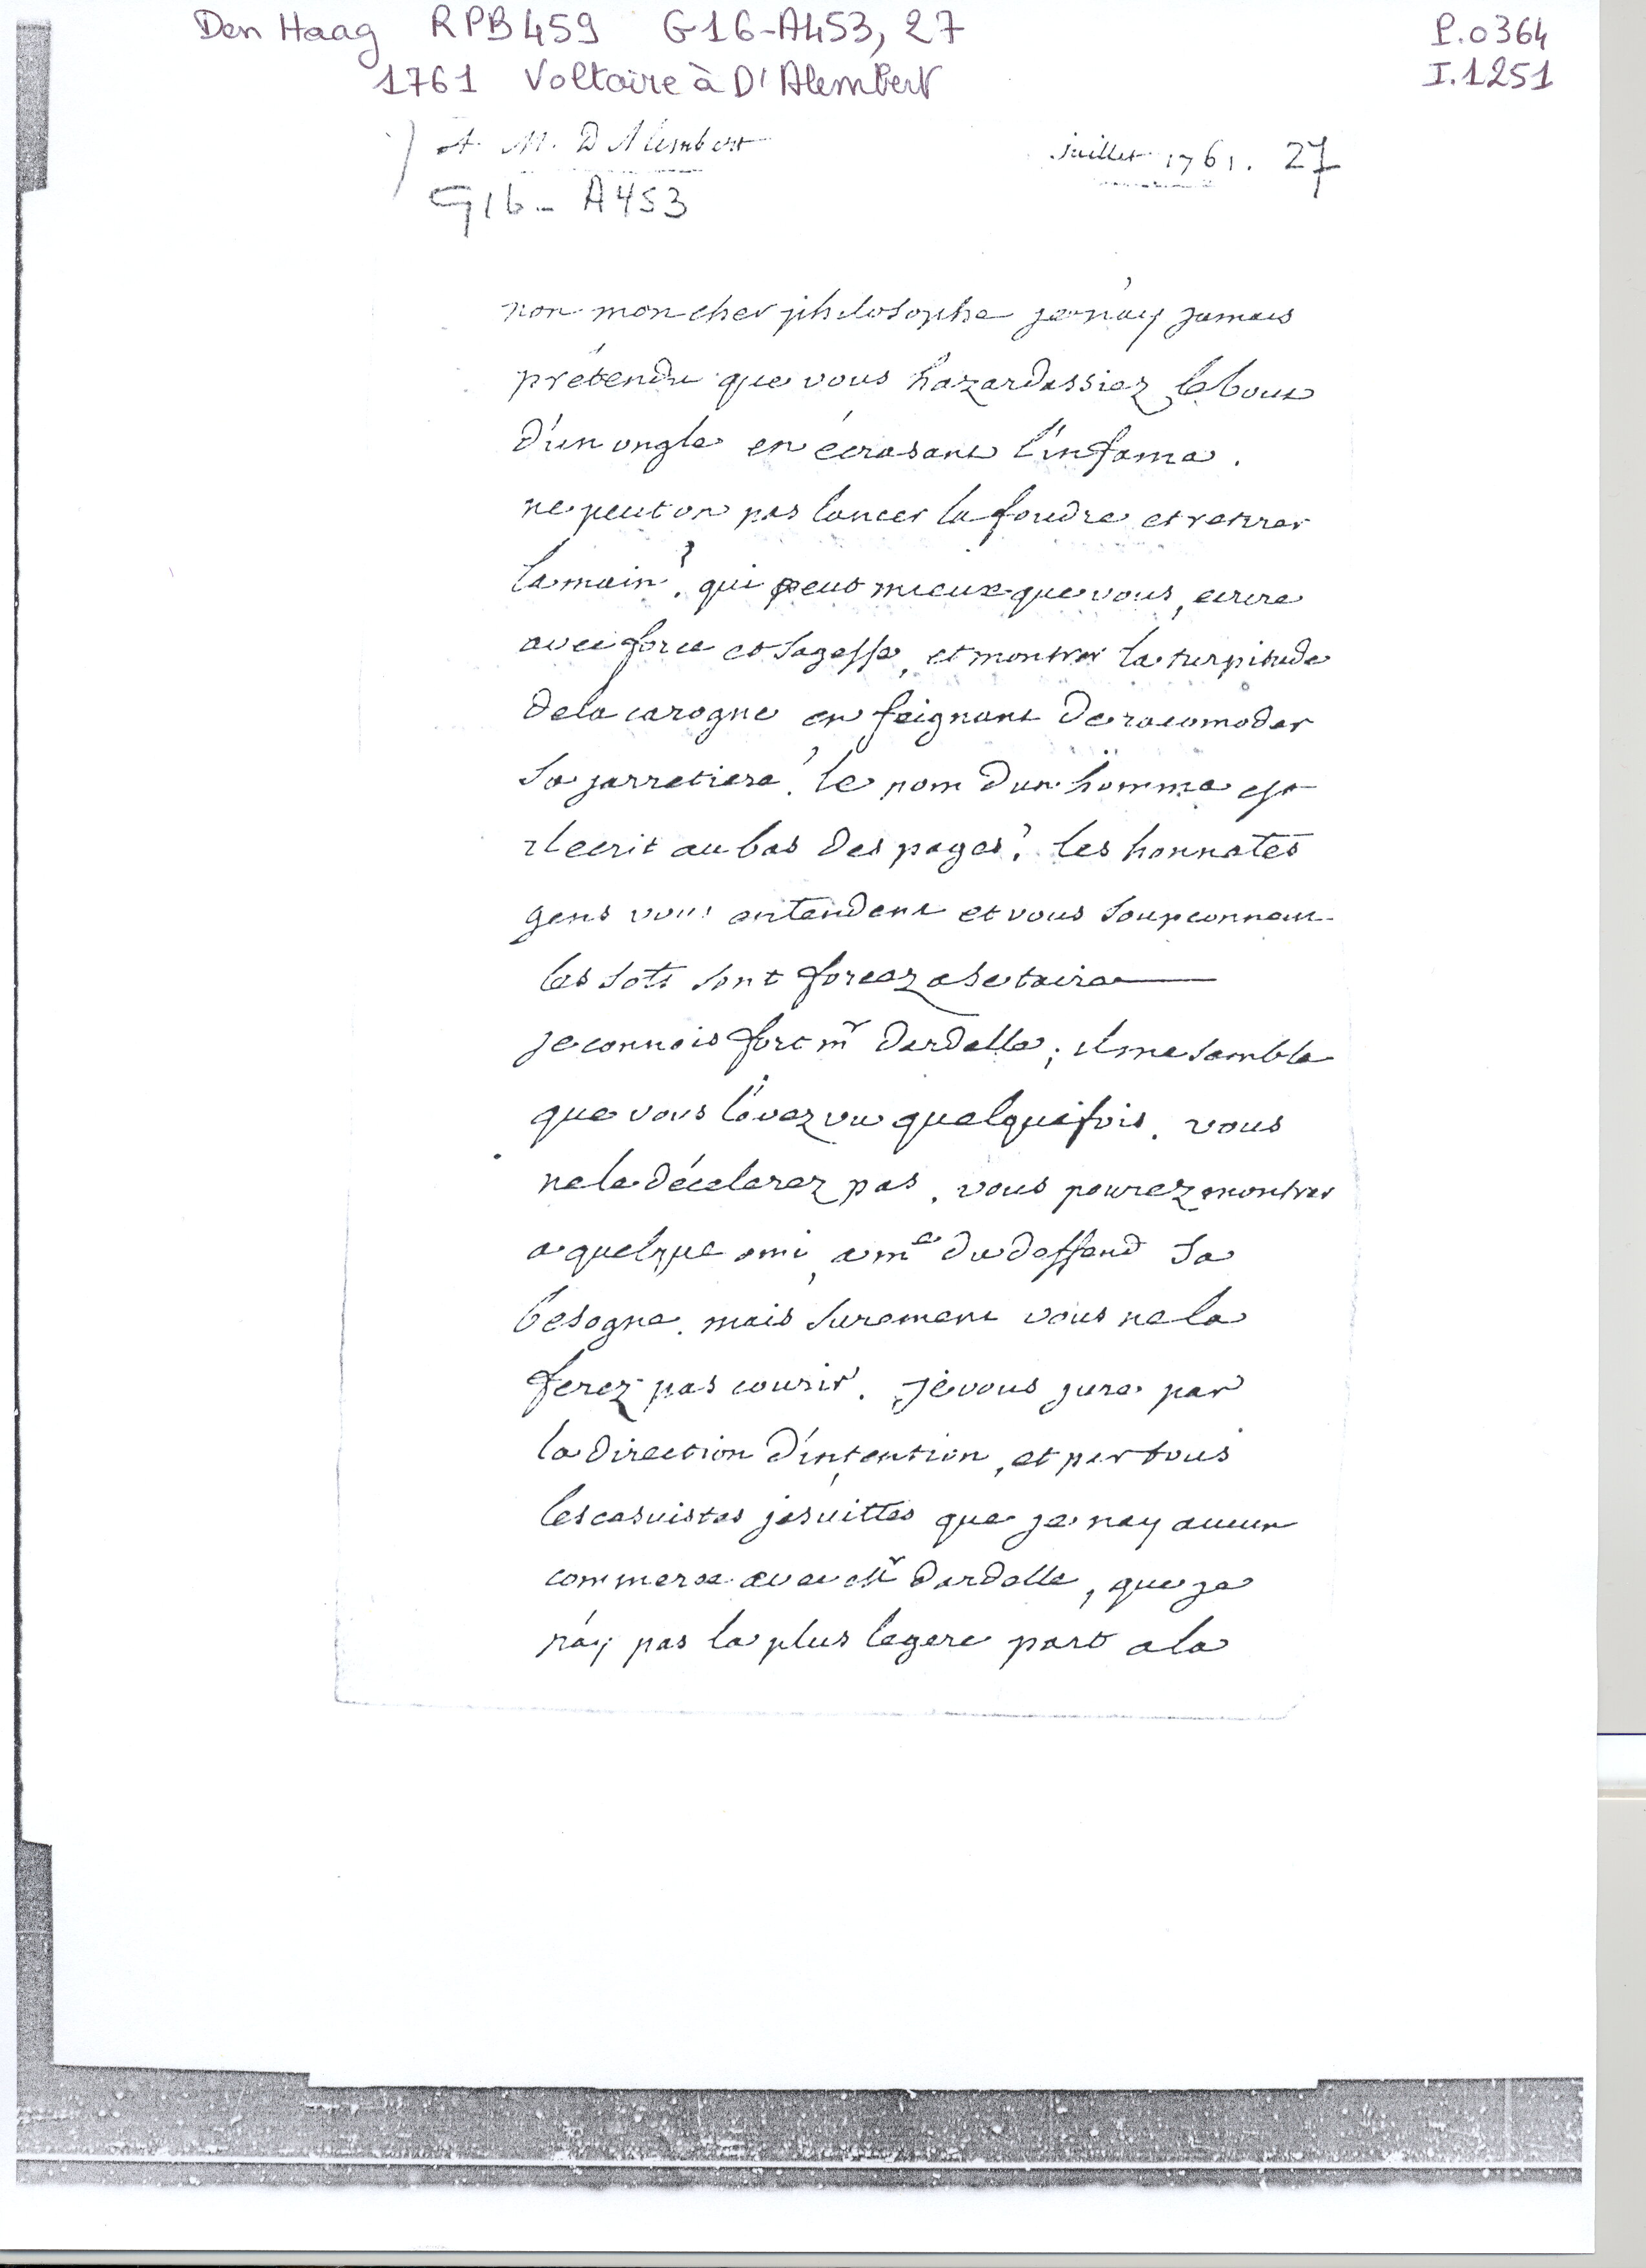 Den Haag RPB459 G16-A453, 27
P.0364
1761 Voltaire à D'Alembert
I.1251
A. M. D Alembert
juillet 1761. 27
G16 - A453
non mon cher philosophe je n'ay jamais
prétendu que vous hazardassiez le bout
d'un ongle en écrasant l'infame.
ne peut on pas lancer la foudre et retirer
la main? qui peut mieux que vous, ecrire
avec force et sagesse, et montrer la turpitude
de la carogne en feignant de racomoder
sa jarretiere? le nom d'un homme est
il ecrit au bas des pages? les honnetes
gens vous entendent et vous soupconnent
les sots sont forcez a se taire
je connois fort mr dardelle; il me semble
que vous l'avez vu quelquefois. vous
ne le décelerez pas. vous pourez montrer
a quelque ami, a me du deffend sa
besogne. mais surement vous ne la
ferez pas courir. je vous jure par
la direction d'intention, et par tous
les casuistes jesuittes que je n'ay aucun
commerce avec Mr dardelle, que je
n'ay pas la plus legere part a la